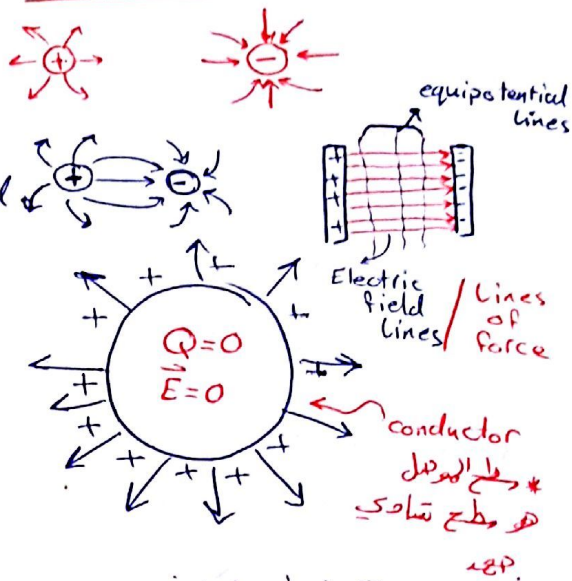 equipotential
lines
Electric
field
Lines
/ Lines
of
force
Q=0
E=0
conductor
* سطح الموصل
هو سطح تساوي
جهد.